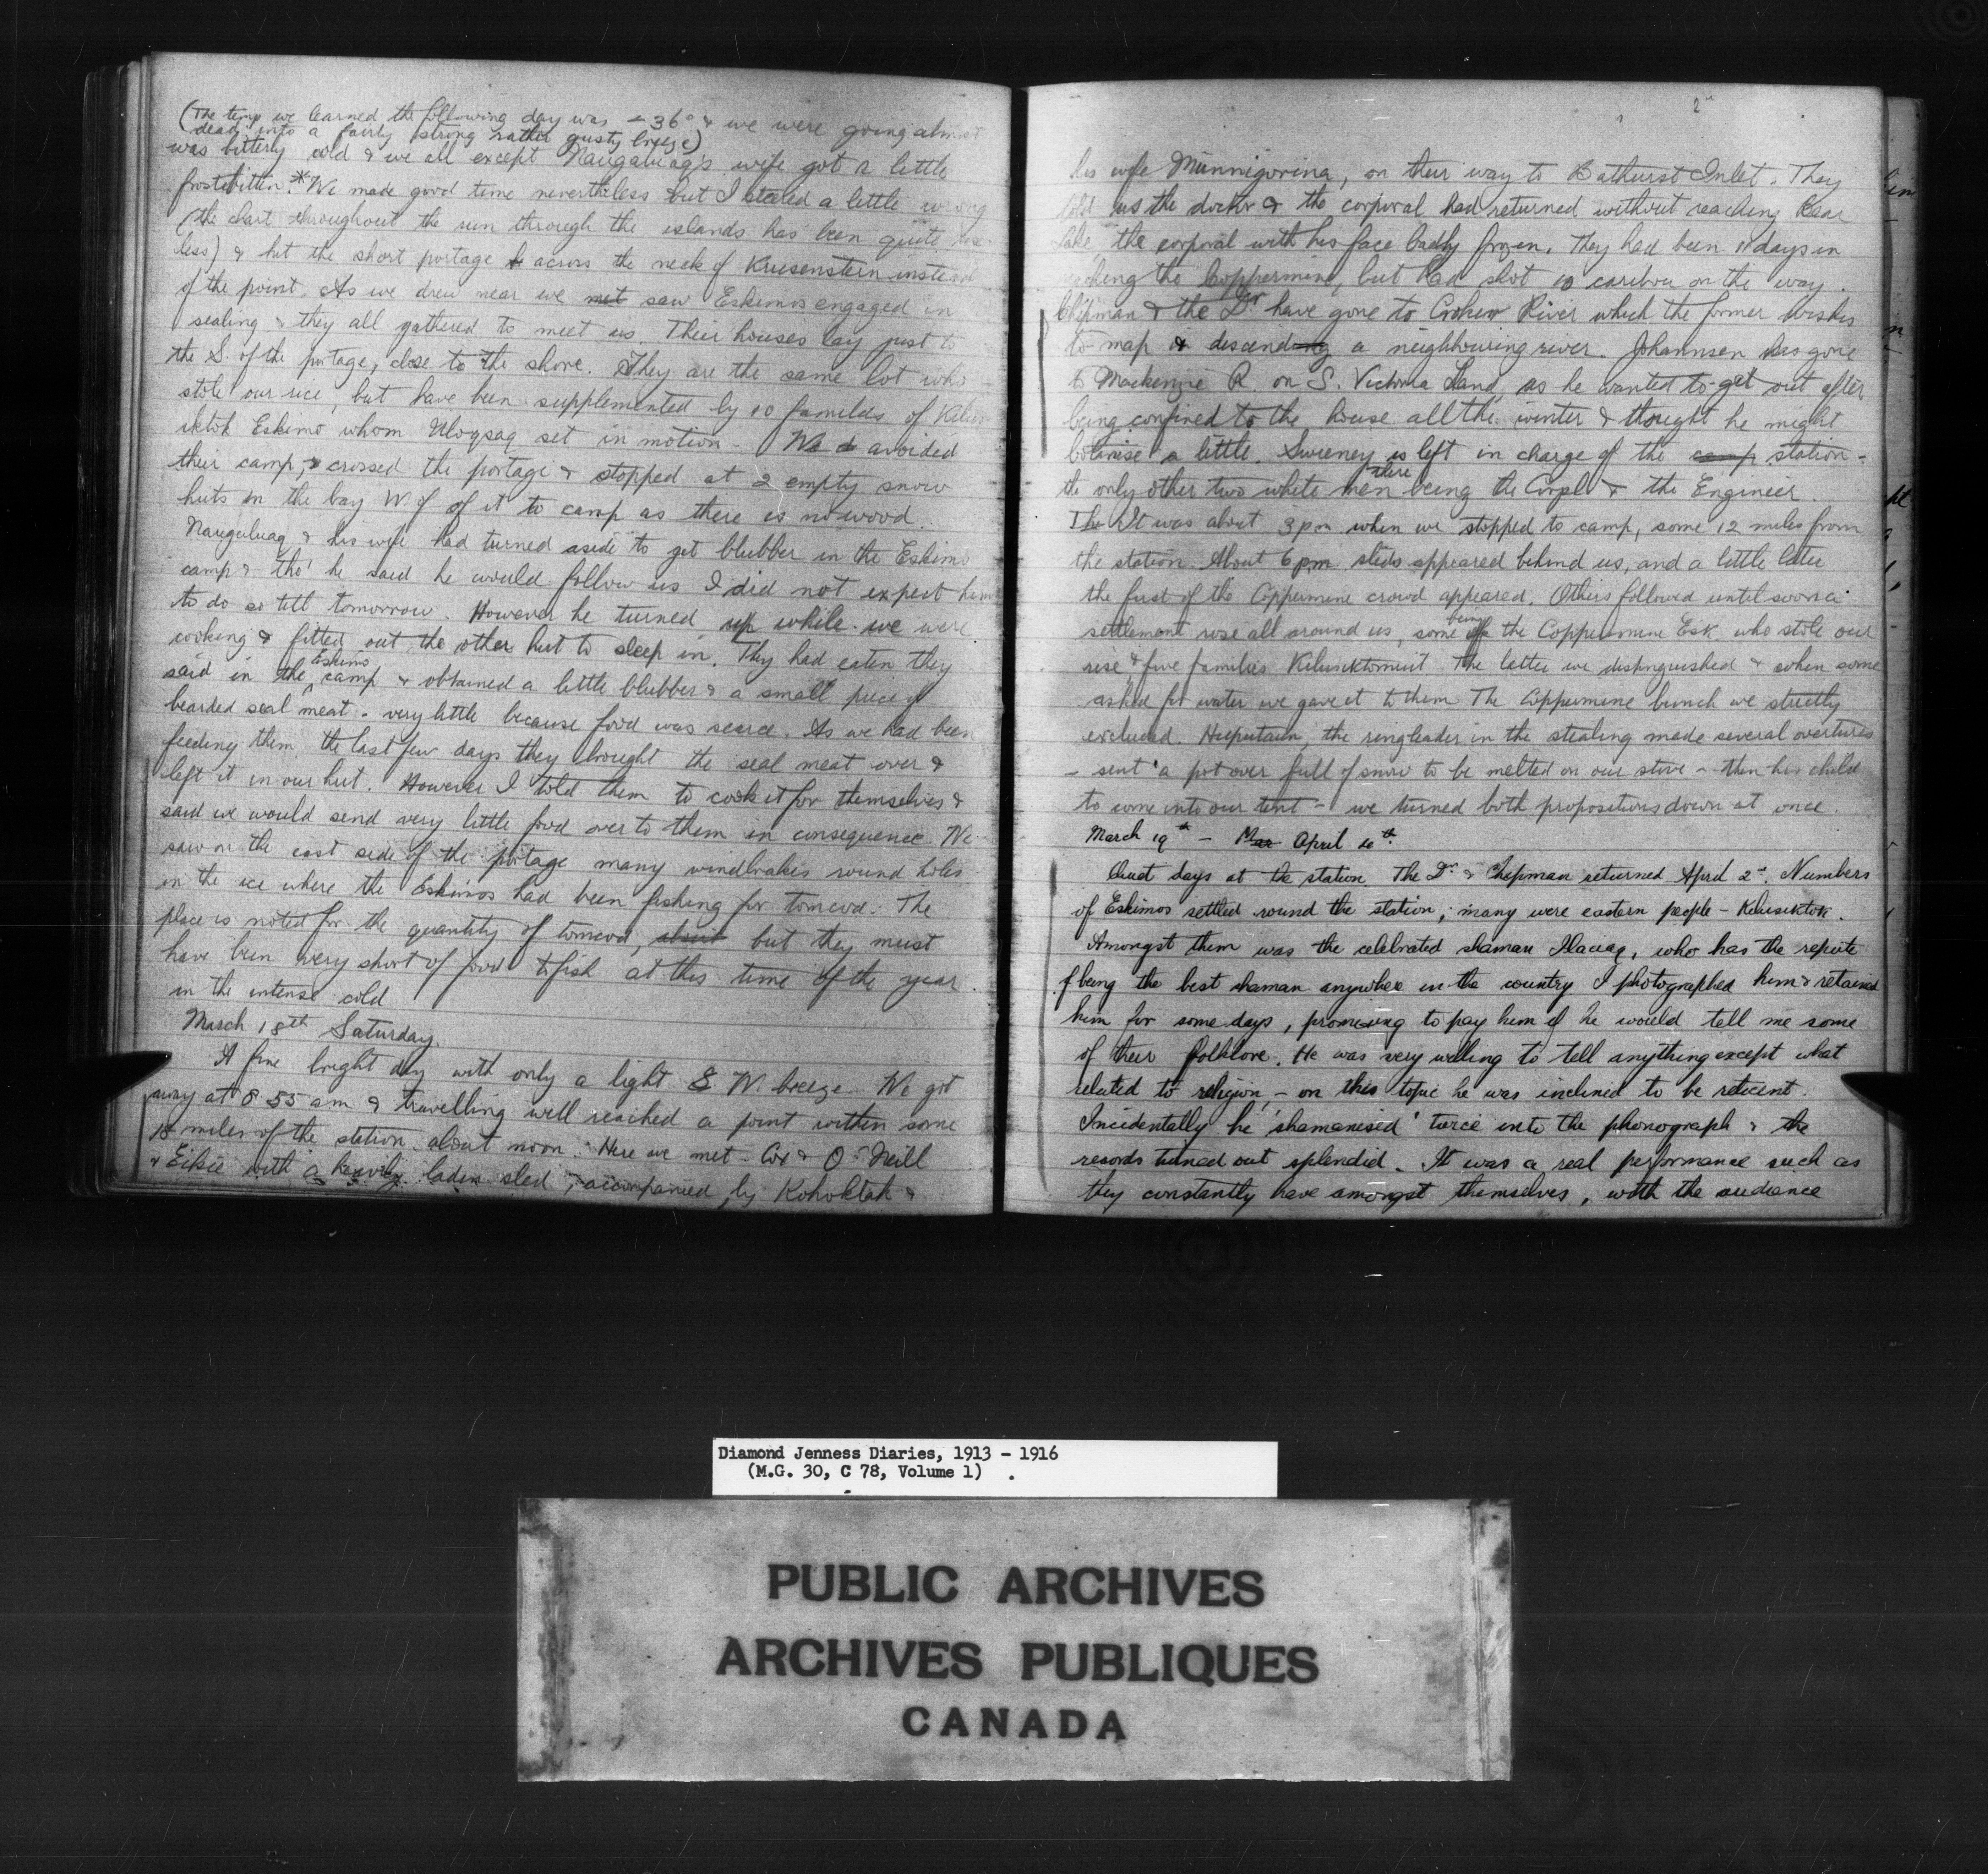 (The temp we learned the following day was - 36° & we were going almost
dead into a fairly strong rather gusty breeze)
was bitterly cold & we all except Naugaluag's wife got a little
frostbitten.* We made good time nevertheless but I steered a little wrong
(the chart throughout the run through the islands has been quite use-
less) & hit the short portage across the neck of Krusenstern instead
of the point. As we drew near we met saw Eskimos engaged in
sealing & they all gathered to meet us. Their houses lay just to
the S. of the portage, close to the shore. They are the same lot who
stole our rice, but have been supplemented by 10 families of Kilus-
iktok Eskimo whom Uloqsaq set in motion - We avoided
their camp, & crossed the portage & stopped at 2 empty snow
huts on the bay W. of of it to camp as there is no wood.
Naugaluag & his wife had turned aside to get blubber in the Eskimo
camp & tho' he said he would follow us I did not expect him
to do so till tomorrow. However he turned up while we were
cooking & fitted out the other hut to sleep in. They had eaten they
said in the Eskimo camp & obtained a little blubber & a small piece of
bearded seal meat - very little because food was scarce. As we had been
feeding them the last few days they brought the seal meat over &
left it in our hut. However I told them to cook it for themselves &
said we would send very little food over to them in consequence. We
saw on the east side of the portage many windbrakes round holes
in the ice where the Eskimos had been fishing for tomcod. The
place is noted for the quantity of tomcod, but they must
have been very short of food to fish at this time of the year
in the intense cold
March 18th Saturday.
A fine bright day with only a light S. W. breeze. We got
away at 8 55 am & travelling well reached a point within some
18 miles of the station about noon. Here we met - Cox & O'Neill
& Eikie with a heavily laden sled, accompanied by Kohoktak &
his wife Munnigorina, on their way to Bathurst Inlet. They
told us the doctor & the corporal had returned without reaching Bear
Lake the corporal with his face badly frozen. They had been 11 days in
reaching the Coppermine, but had shot 10 caribou on the way.
Chipman & the Dr have gone to Croker River which the former wishes
to map & descend a neighbouring river. Johannsen has gone
to Mackenzie R. on S. Victoria Land, as he wanted to get out after
being confined to the house all the winter & thought he might
botanise a little. Sweeney is left in charge of the camp station -
the only other two white men there being the Corpl & the Engineer.
The It was about 3 pm when we stopped to camp, some 12 miles from
the station. About 6 pm sleds appeared behind us, and a little later
the first of the Coppermine crowd appeared. Others followed until soon a
settlement rose all around us, some being the Coppermine Esk. who stole our
rice, & five families Kilusiktomiut. The latter we distinguished & when some
asked for water we gave it to them. The Coppermine bunch we strictly
excluded. the ringleader in the stealing made several overtures
- sent a pot over full of snow to be melted on our stove - then his child
to come into our tent - we turned both propositions down at once.
March 19th - Mar April 10th.
Quiet days at the station. The Dr. & Chipman returned April 2nd. Numbers
of Eskimos settled round the station; many were eastern people - Kilusiktok.
Amongst them was the celebrated shaman Ilaciaq, who has the repute
of being the best shaman anywhere in the country I photographed him & retained
him for some days, promising to pay him if he would tell me some
of their folklore. He was very willing to tell anything except what
related to religion, - on this topic he was inclined to be reticent.
Incidentally he 'shamanised' twice into the phonograph & the
records turned out splendid. It was a real performance such as
they constantly have amongst themselves, with the audience
Diamond Jenness Diaries, 1913 - 1916
(M.G. 30, C 78, Volume 1)
PUBLIC ARCHIVES
ARCHIVES PUBLIQUES
CANADA